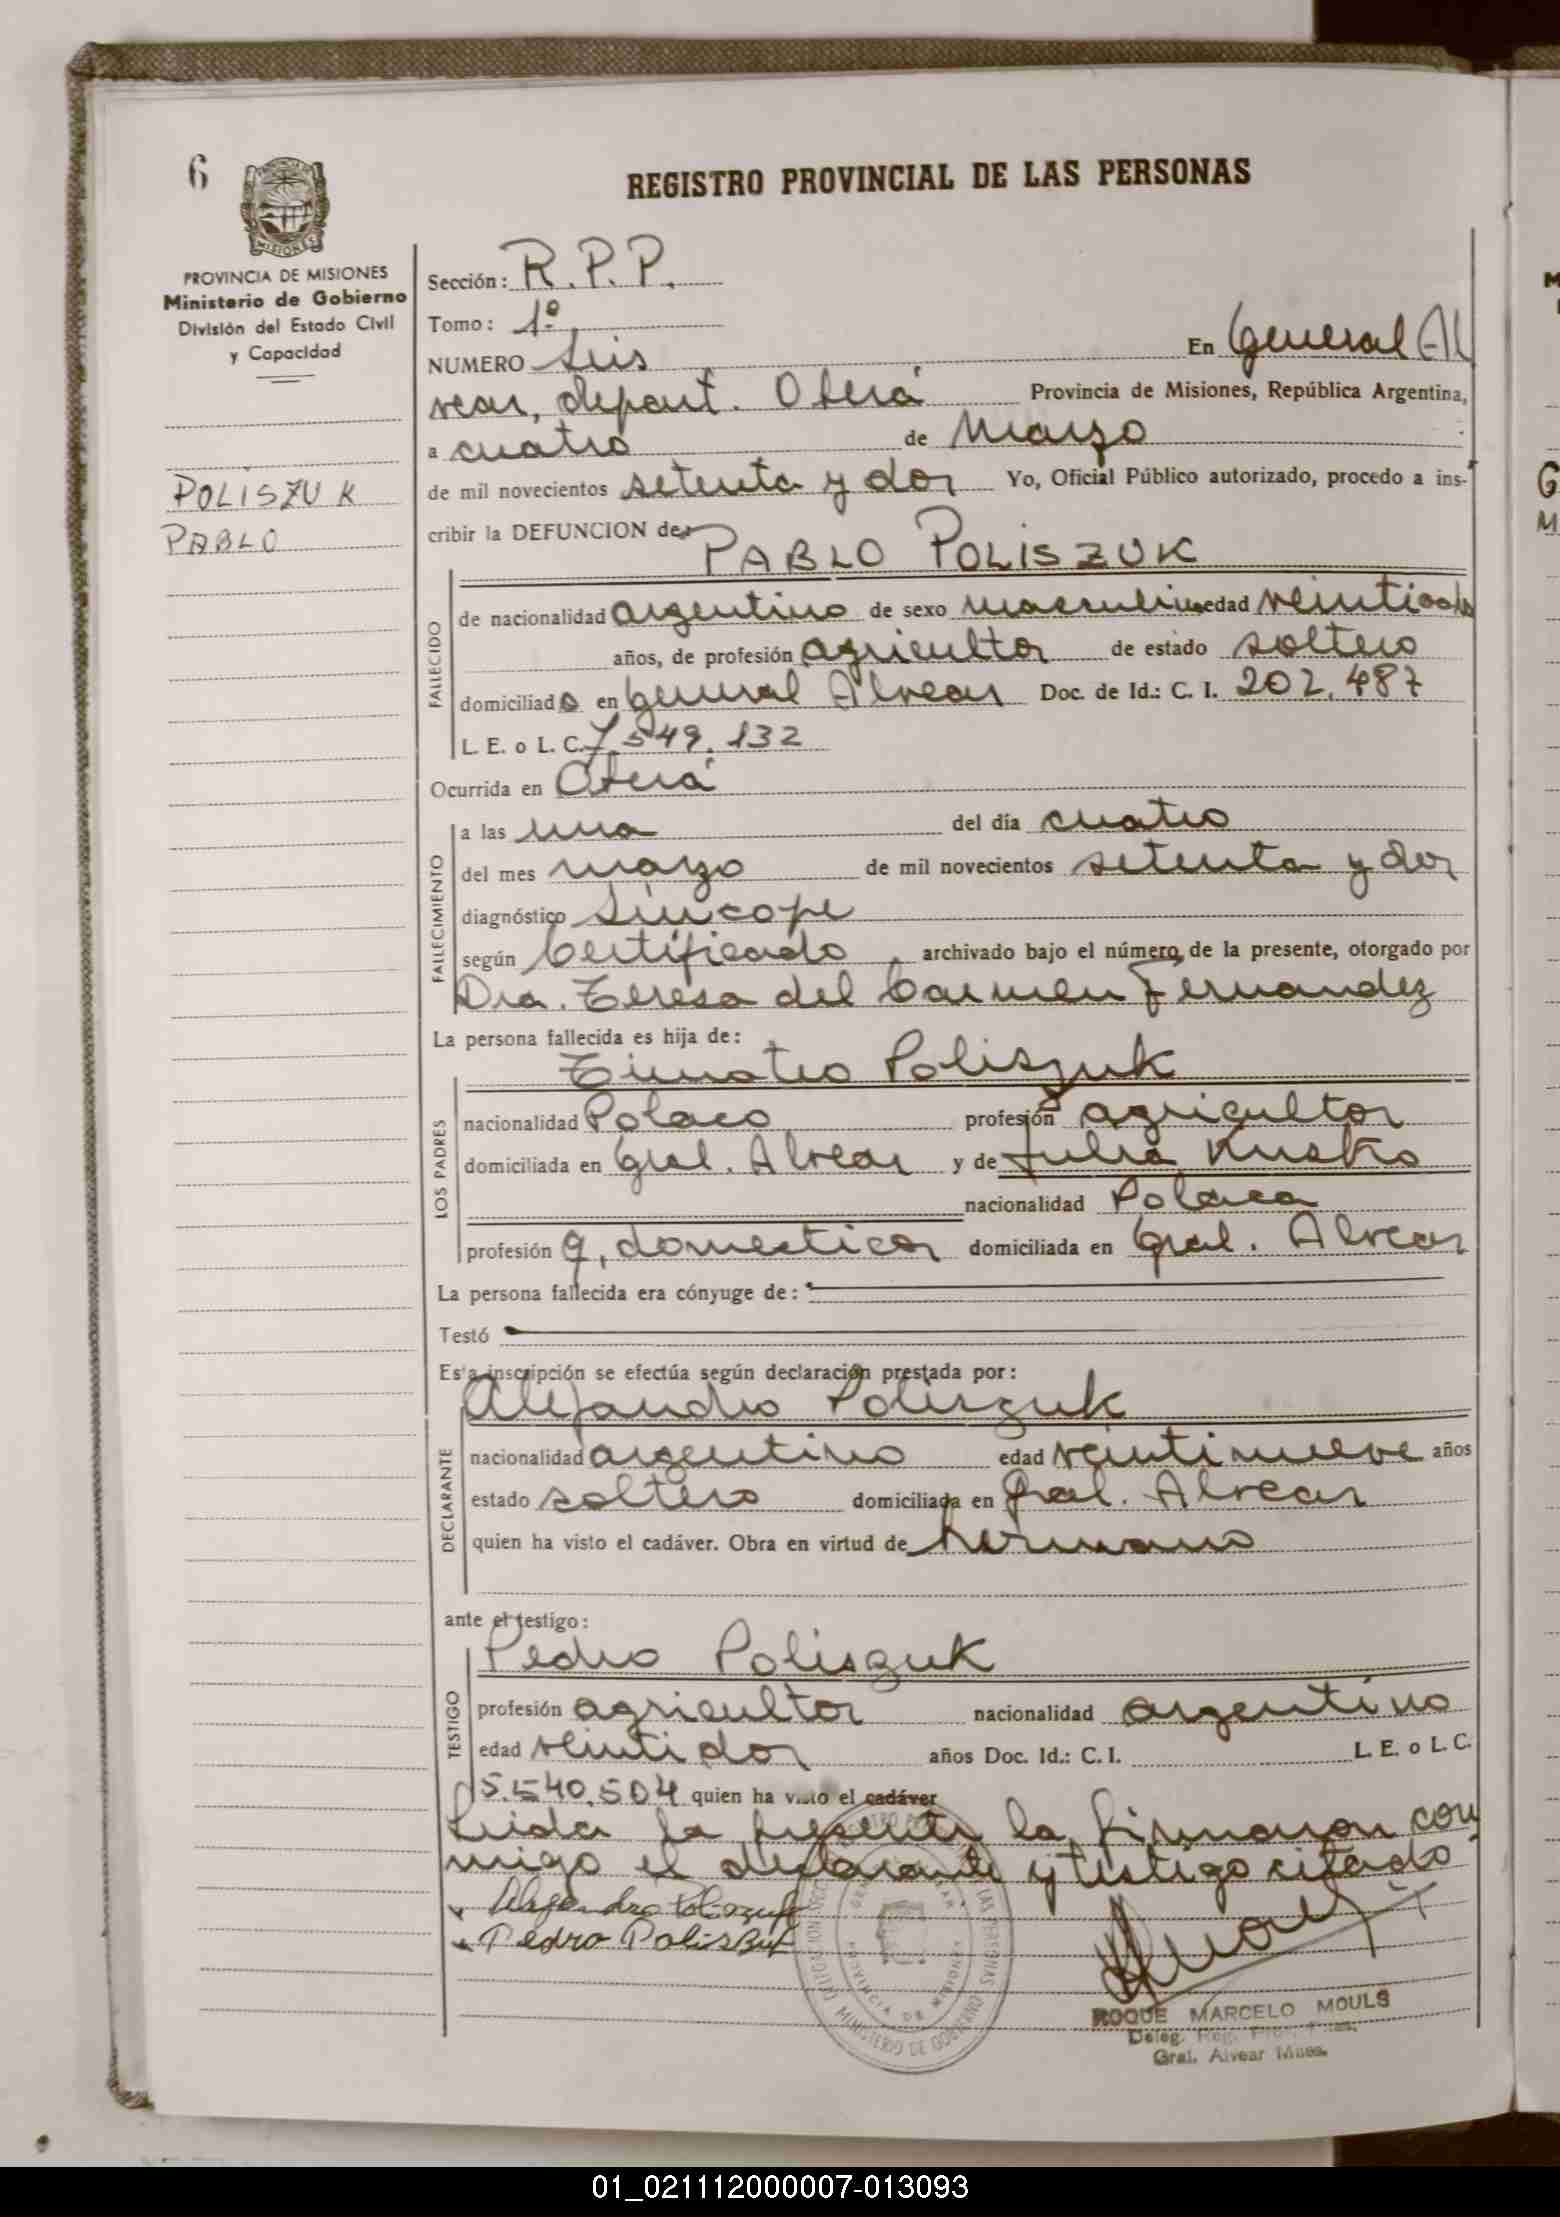 6
REGISTRO PROVINCIAL DE LAS PERSONAS
PROVINCIA DE MISIONES
Ministerio de Gobierno
División del Estado Civil
y Capacidad
POLISZUK
PABLO
Sección: R.P.P.
Tomo: 1º
NUMERO Seis En General Al
vear, depart. Oberá Provincia de Misiones, República Argentina,
a cuatro de Marzo
de mil novecientos setenta y dos Yo, Oficial Público autorizado, procedo a ins-
cribir la DEFUNCION de:
PABLO POLISZUK
FALLECIDO
de nacionalidad argentino de sexo masculino edad veintiocho
años, de profesión agricultor de estado soltero
domiciliado en General Alvear Doc. de Id.: C. I. 202.487
L. E. o L. C. 7.549.132
Ocurrida en Oberá
FALLECIMIENTO
a las una del día cuatro
del mes marzo de mil novecientos setenta y dos
diagnóstico Síncope
según Certificado archivado bajo el número de la presente, otorgado por
Dra. Teresa del Carmen Fernandez
La persona fallecida es hija de:
Timoteo Poliszuk
LOS PADRES
nacionalidad Polaco profesión agricultor
domiciliada en Gral. Alvear y de Julia Kusko
nacionalidad Polaca
profesión q. domesticos domiciliada en Gral. Alvear
La persona fallecida era cónyuge de:
Testó
Esta inscripción se efectúa según declaración prestada por:
Alejandro Poliszuk
DECLARANTE
nacionalidad argentino edad veintinueve años
estado soltero domiciliada en Gral. Alvear
quien ha visto el cadáver. Obra en virtud de hermano
ante el testigo:
Pedro Poliszuk
TESTIGO
profesión agricultor nacionalidad argentino
edad veintidos años Doc. Id.: C. I. L. E. o L. C.
5.540.504 quien ha visto el cadáver
Leida la presente la firmaron con
migo el declarante y testigo citado
Alejandro Poliszuk
Pedro Poliszuk
ROQUE MARCELO MOULS
Deleg. Reg. Prov. Pnas.
Gral. Alvear Mnes.
01_021112000007-013093